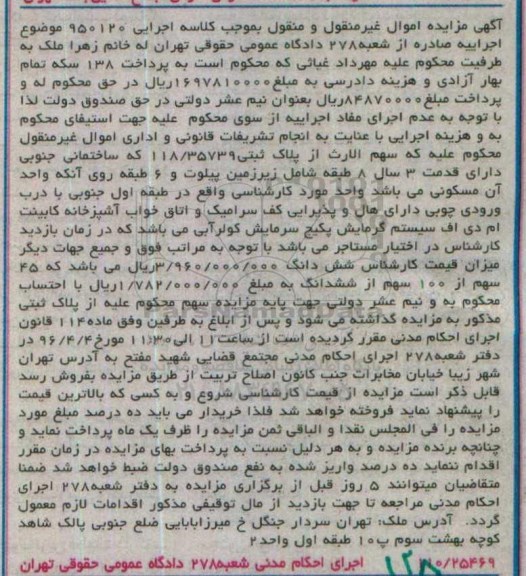 آگهی مزایده اموال غیرمنقول و منقول بموجب کلاسه اجرایی ۹۵۰۱۲۰ موضوع
اجراییه صادره از شعبه۲۷۸ دادگاه عمومی حقوقی تهران له خانم زهرا ملک به
طرفیت محکوم علیه مهرداد غیاثی که محکوم است به پرداخت ۱۳۸ سکه تمام
بهار آزادی و هزینه دادرسی به مبلغ۱۶۹۷۸۱۰۰۰۰ریال در حق محکوم له و
پرداخت مبلغ۸۴۸۷۰۰۰۰ریال بعنوان نیم عشر دولتی در حق صندوق دولت لذا
با توجه به عدم اجرای مفاد اجراییه از سوی محکوم علیه جهت استیفای محکوم
به و هزینه اجرایی با عنایت به انجام تشریفات قانونی و اداری اموال غیرمنقول
محکوم علیه که سهم الارث از پلاک ثبتی۱۱۸/۳۵۷۳۹ که ساختمانی جنوبی
دارای قدمت ۳ سال ۸ طبقه شامل زیرزمین پیلوت و ۶ طبقه روی آنکه واحد
آن مسکونی می باشد واحد مورد کارشناسی واقع در طبقه اول جنوبی با درب
ورودی چوبی دارای هال و پذیرایی کف سرامیک و اتاق خواب آشپزخانه کابینت
ام دی اف سیستم گرمایش پکیج سرمایش کولرآبی می باشد که در زمان بازدید
کارشناس در اختیار مستاجر می باشد با توجه به مراتب فوق و جمیع جهات دیگر
میزان قیمت کارشناس شش دانگ ۳/۹۶۰/۰۰۰/۰۰۰ریال می باشد که ۴۵
سهم از ۱۰۰ سهم از ششدانگ به مبلغ ۱/۷۸۲/۰۰۰/۰۰۰ریال با احتساب
محکوم به و نیم عشر دولتی جهت پایه مزایده سهم محکوم علیه از پلاک ثبتی
مذکور به مزایده گذاشته می شود و پس از ابلاغ به طرفین وفق ماده۱۱۴ قانون
اجرای احکام مدنی مقرر گردیده است از ساعت۱۱ الی۱۱:۳۰ مورخ۹۶/۴/۴ در
دفتر شعبه۲۷۸ اجرای احکام مدنی مجتمع قضایی شهید مفتح به آدرس تهران
شهر زیبا خیابان مخابرات جنب کانون اصلاح تربیت از طریق مزایده بفروش رسد
قابل ذکر است مزایده از قیمت کارشناسی شروع و به کسی که بالاترین قیمت
را پیشنهاد نماید فروخته خواهد شد فلذا خریدار می باید ده درصد مبلغ مورد
مزایده را فی المجلس نقدا و الباقی ثمن مزایده را ظرف یک ماه پرداخت نماید و
چنانچه برنده مزایده و به هر دلیل نسبت به پرداخت بهای مزایده در زمان مقرر
اقدام ننماید ده درصد واریز شده به نفع صندوق دولت ضبط خواهد شد ضمنا
متقاضیان میتوانند ۵ روز قبل از برگزاری مزایده به دفتر شعبه۲۷۸ اجرای
احکام مدنی مراجعه تا جهت بازدید از مال توقیفی مذکور اقدامات لازم معمول
گردد. آدرس ملک: تهران سردار جنگل خ میرزابابایی ضلع جنوبی پالک شاهد
کوچه بهشت سوم پ۱۰ طبقه اول واحد۲
۱۰/۲۵۴۶۹ اجرای احکام مدنی شعبه۲۷۸ دادگاه عمومی حقوقی تهران